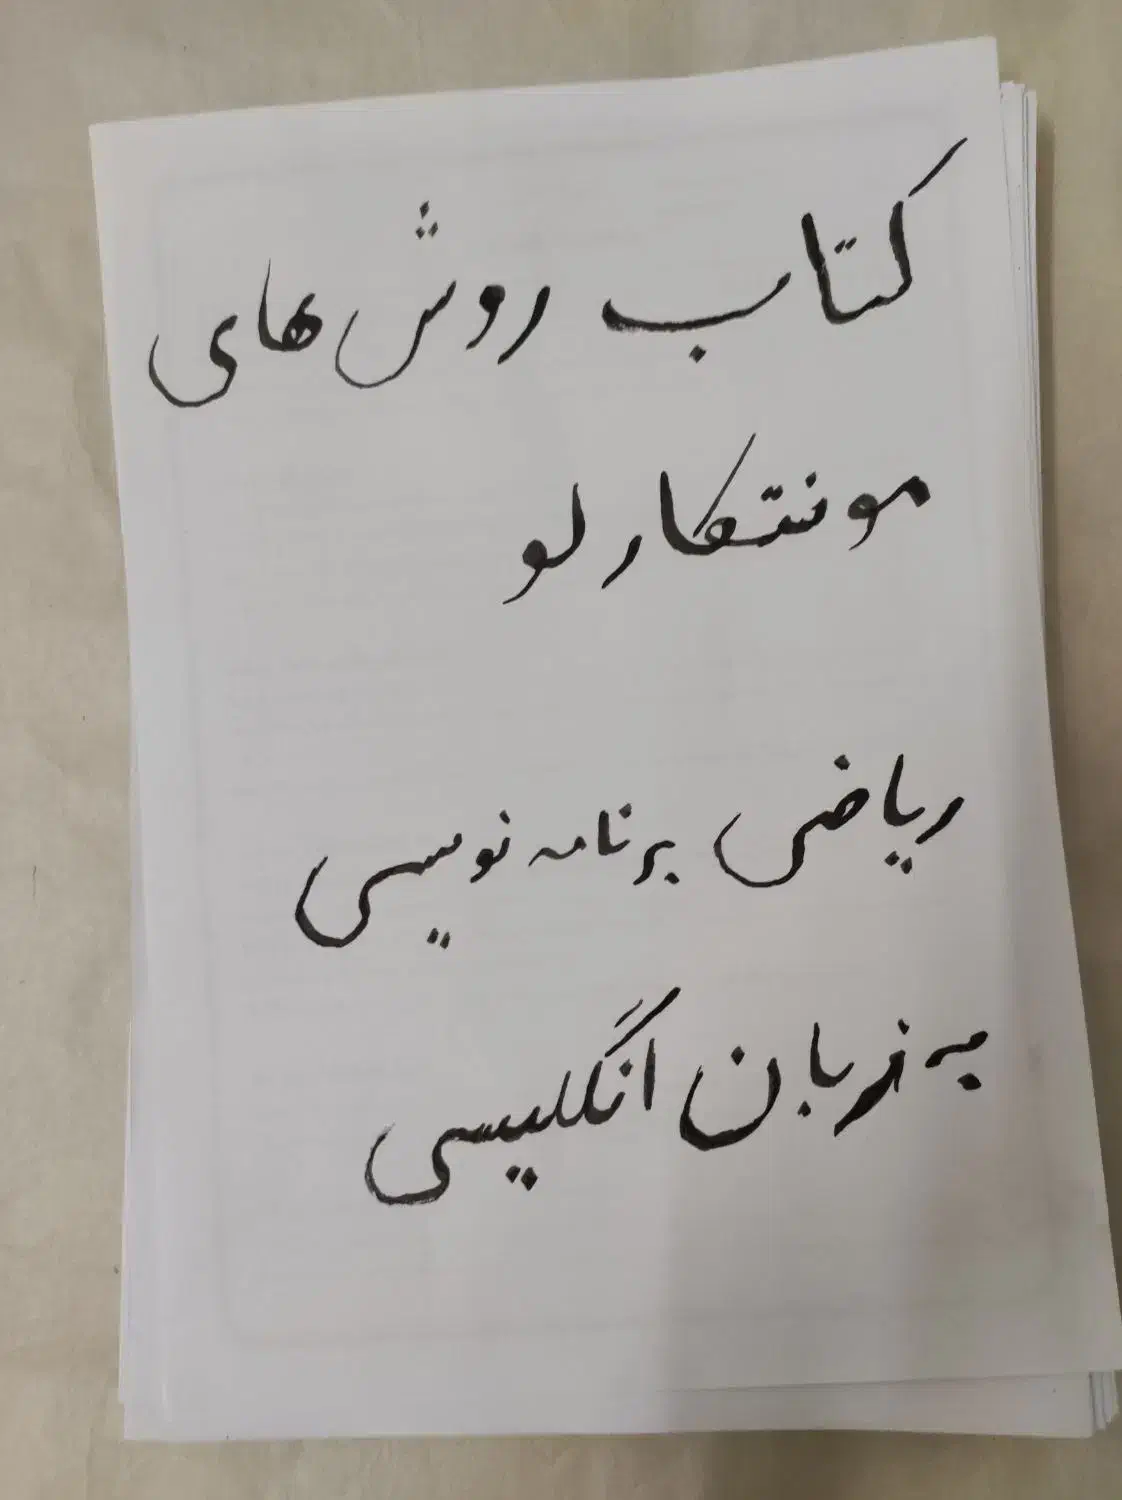 کتاب روش های
مونتکارلو
ریاضی برنامه نویسی
به زبان انگلیسی